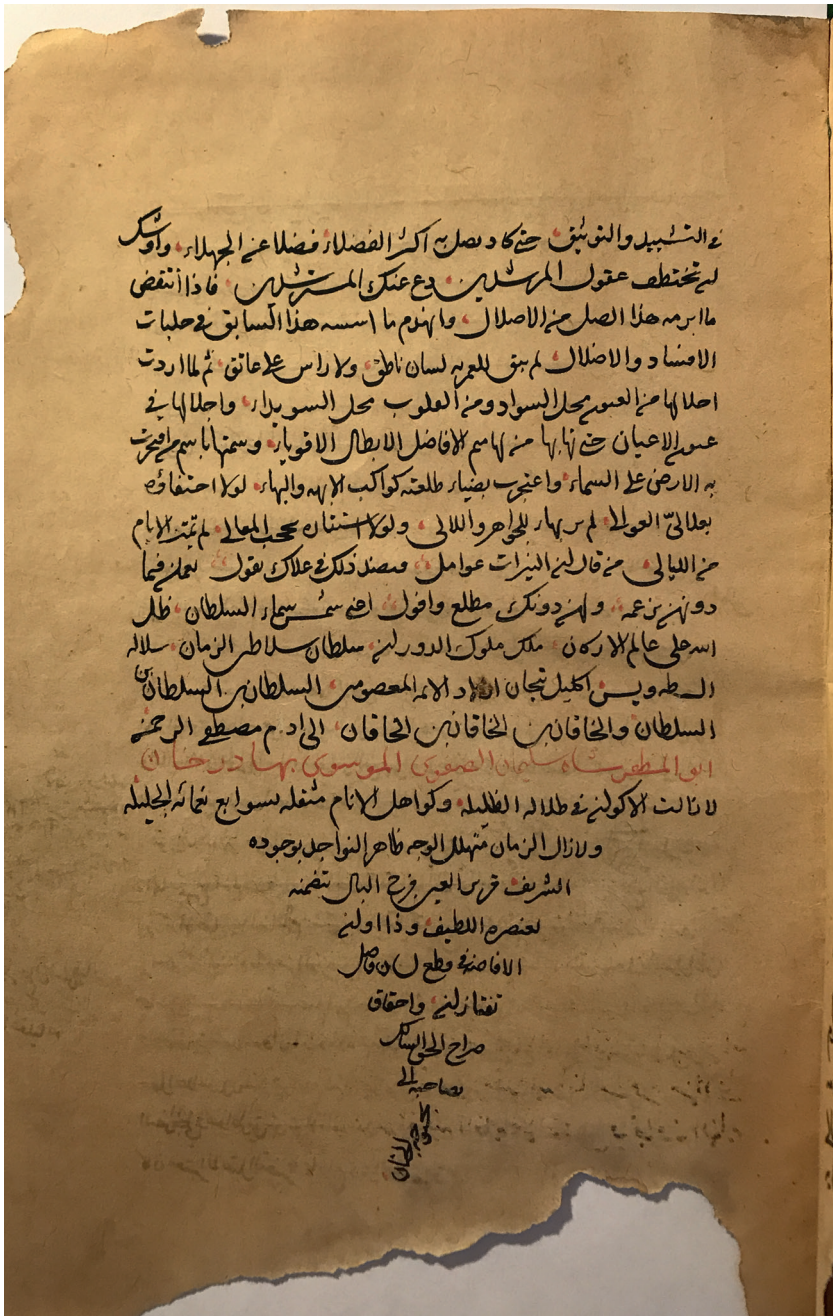 في التشييد والتوثيق حتى كاد يضل به اكثر الفضلاء فضلا عن الجهلاء واوشك
ان تختطف عقول المرشدين دع عنك المسترشدين فاذا انتقض
ما ابرمه هذا الصل من الاضلال وانهدم ما اسسه هذا السابق في حلبات
الافساد والاضلال لم يبق للعمريه لسان ناطق ولا راس على عاتق ثم لما اردت
احلالها من العيون محل السواد ومن القلوب محل السويداء واجلالها في
عيون الاعيان حتى تهابها منهم لهاميم الافاضل الابطال الاقوياء وسمتها باسم من افتخرت
به الارض على السماء واحتجب بضياء طلعته كواكب الابهه والبهاء لولا احتفاؤه
بمعالي العوالي لم ير بهاء للجواهر واللالي ولولا استتاره بحجب المعالي لم تميز الايام
من الليالي من قال ان النيرات عوامل فبضد ذلك في علاك نقول يعملن فيما
دونهن بزعمه ولهن دونك مطلع وافول اعني شمس سماء السلطان ظل
الله على عالم الاركان ملك ملوك الدوران سلطان سلاطين الزمان سلاله
طه ويس اكليل تيجان اولاد الائمه المعصومين السلطان بن السلطان بن
السلطان والخاقان بن الخاقان بن الخاقان الى ادم مصطفى الرحمن
ابو المظفر شاه سليمان الصفوي الموسوي بهادر خان
لا زالت الاكوان في ظلاله الظليله وكواهل الانام مثقله بسوابغ نعمائه الجليله
ولازال الزمان متهلل الوجه ظاهر النواجذ بوجوده
الشريف قرير العين فرح البال بتضمنه
لعنصره اللطيف وذا اوان
الافاضه في قطع لسان فاضل
تفتازان واحقاق
صراح الحق السالك
بصاحبه الى
بحبوحة
الجنان